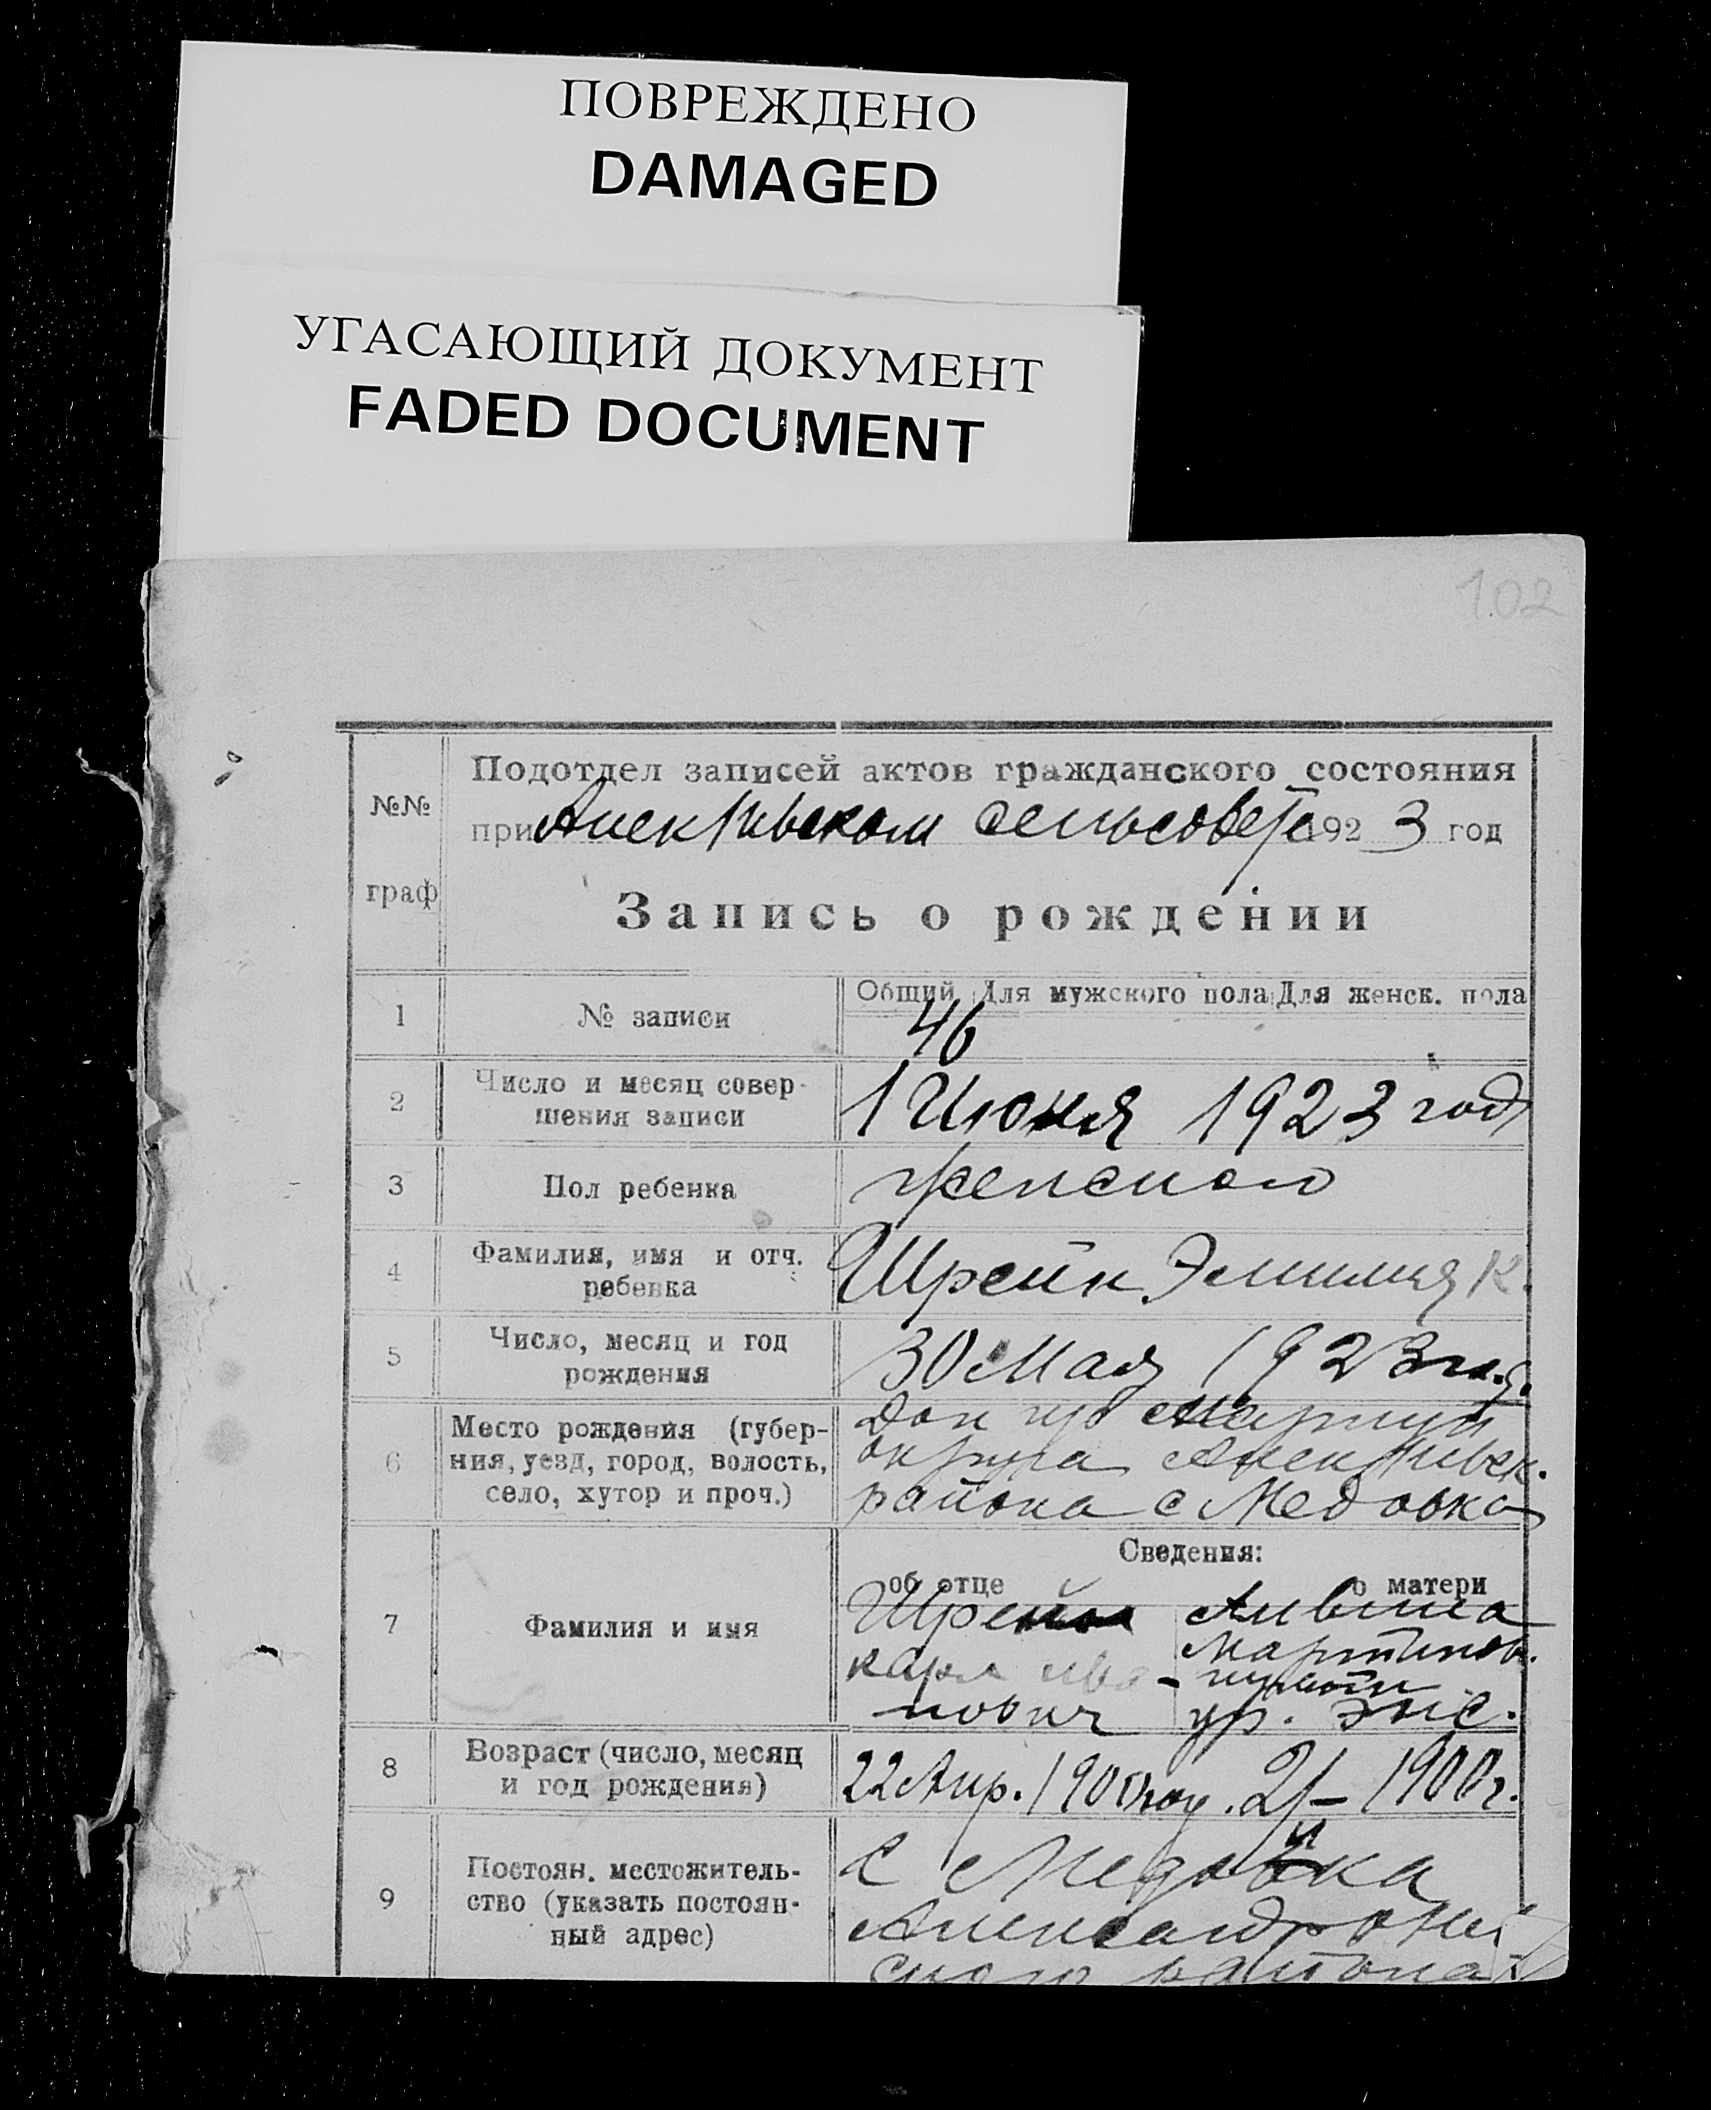 ПОВРЕЖДЕНО
DAMAGED
УГАСАЮЩИЙ ДОКУМЕНТ
FADED DOCUMENT
102
№№
граф
Подотдел записей актов гражданского состояния
при сельсовете 1923 год
Запись о рождении
1
№ записи
Общий Для мужского пола Для женск. пола
46
2
Число и месяц совер-
шения записи
1 Июня 1923 год
3
Пол ребенка
женского
4
Фамилия, имя и отч.
ребенка
Шрейн Эмилия К.
5
Число, месяц и год
рождения
30 Мая 1923 год.
6
Место рождения (губер-
ния, уезд, город, волость,
село, хутор и проч.)
Дон губ Мариуп
округа
района с Медовка
7
Фамилия и имя
Сведения:
об отце
о матери
Шрейн
Карл Ива-
нович
Альвина
Мартинов.
ур.
8
Возраст (число, месяц
и год рождения)
22 Апр. 1900 год. 21 – 1900 г.
9
Постоян. местожитель-
ство (указать постоян-
ный адрес)
С Медовка
ского района